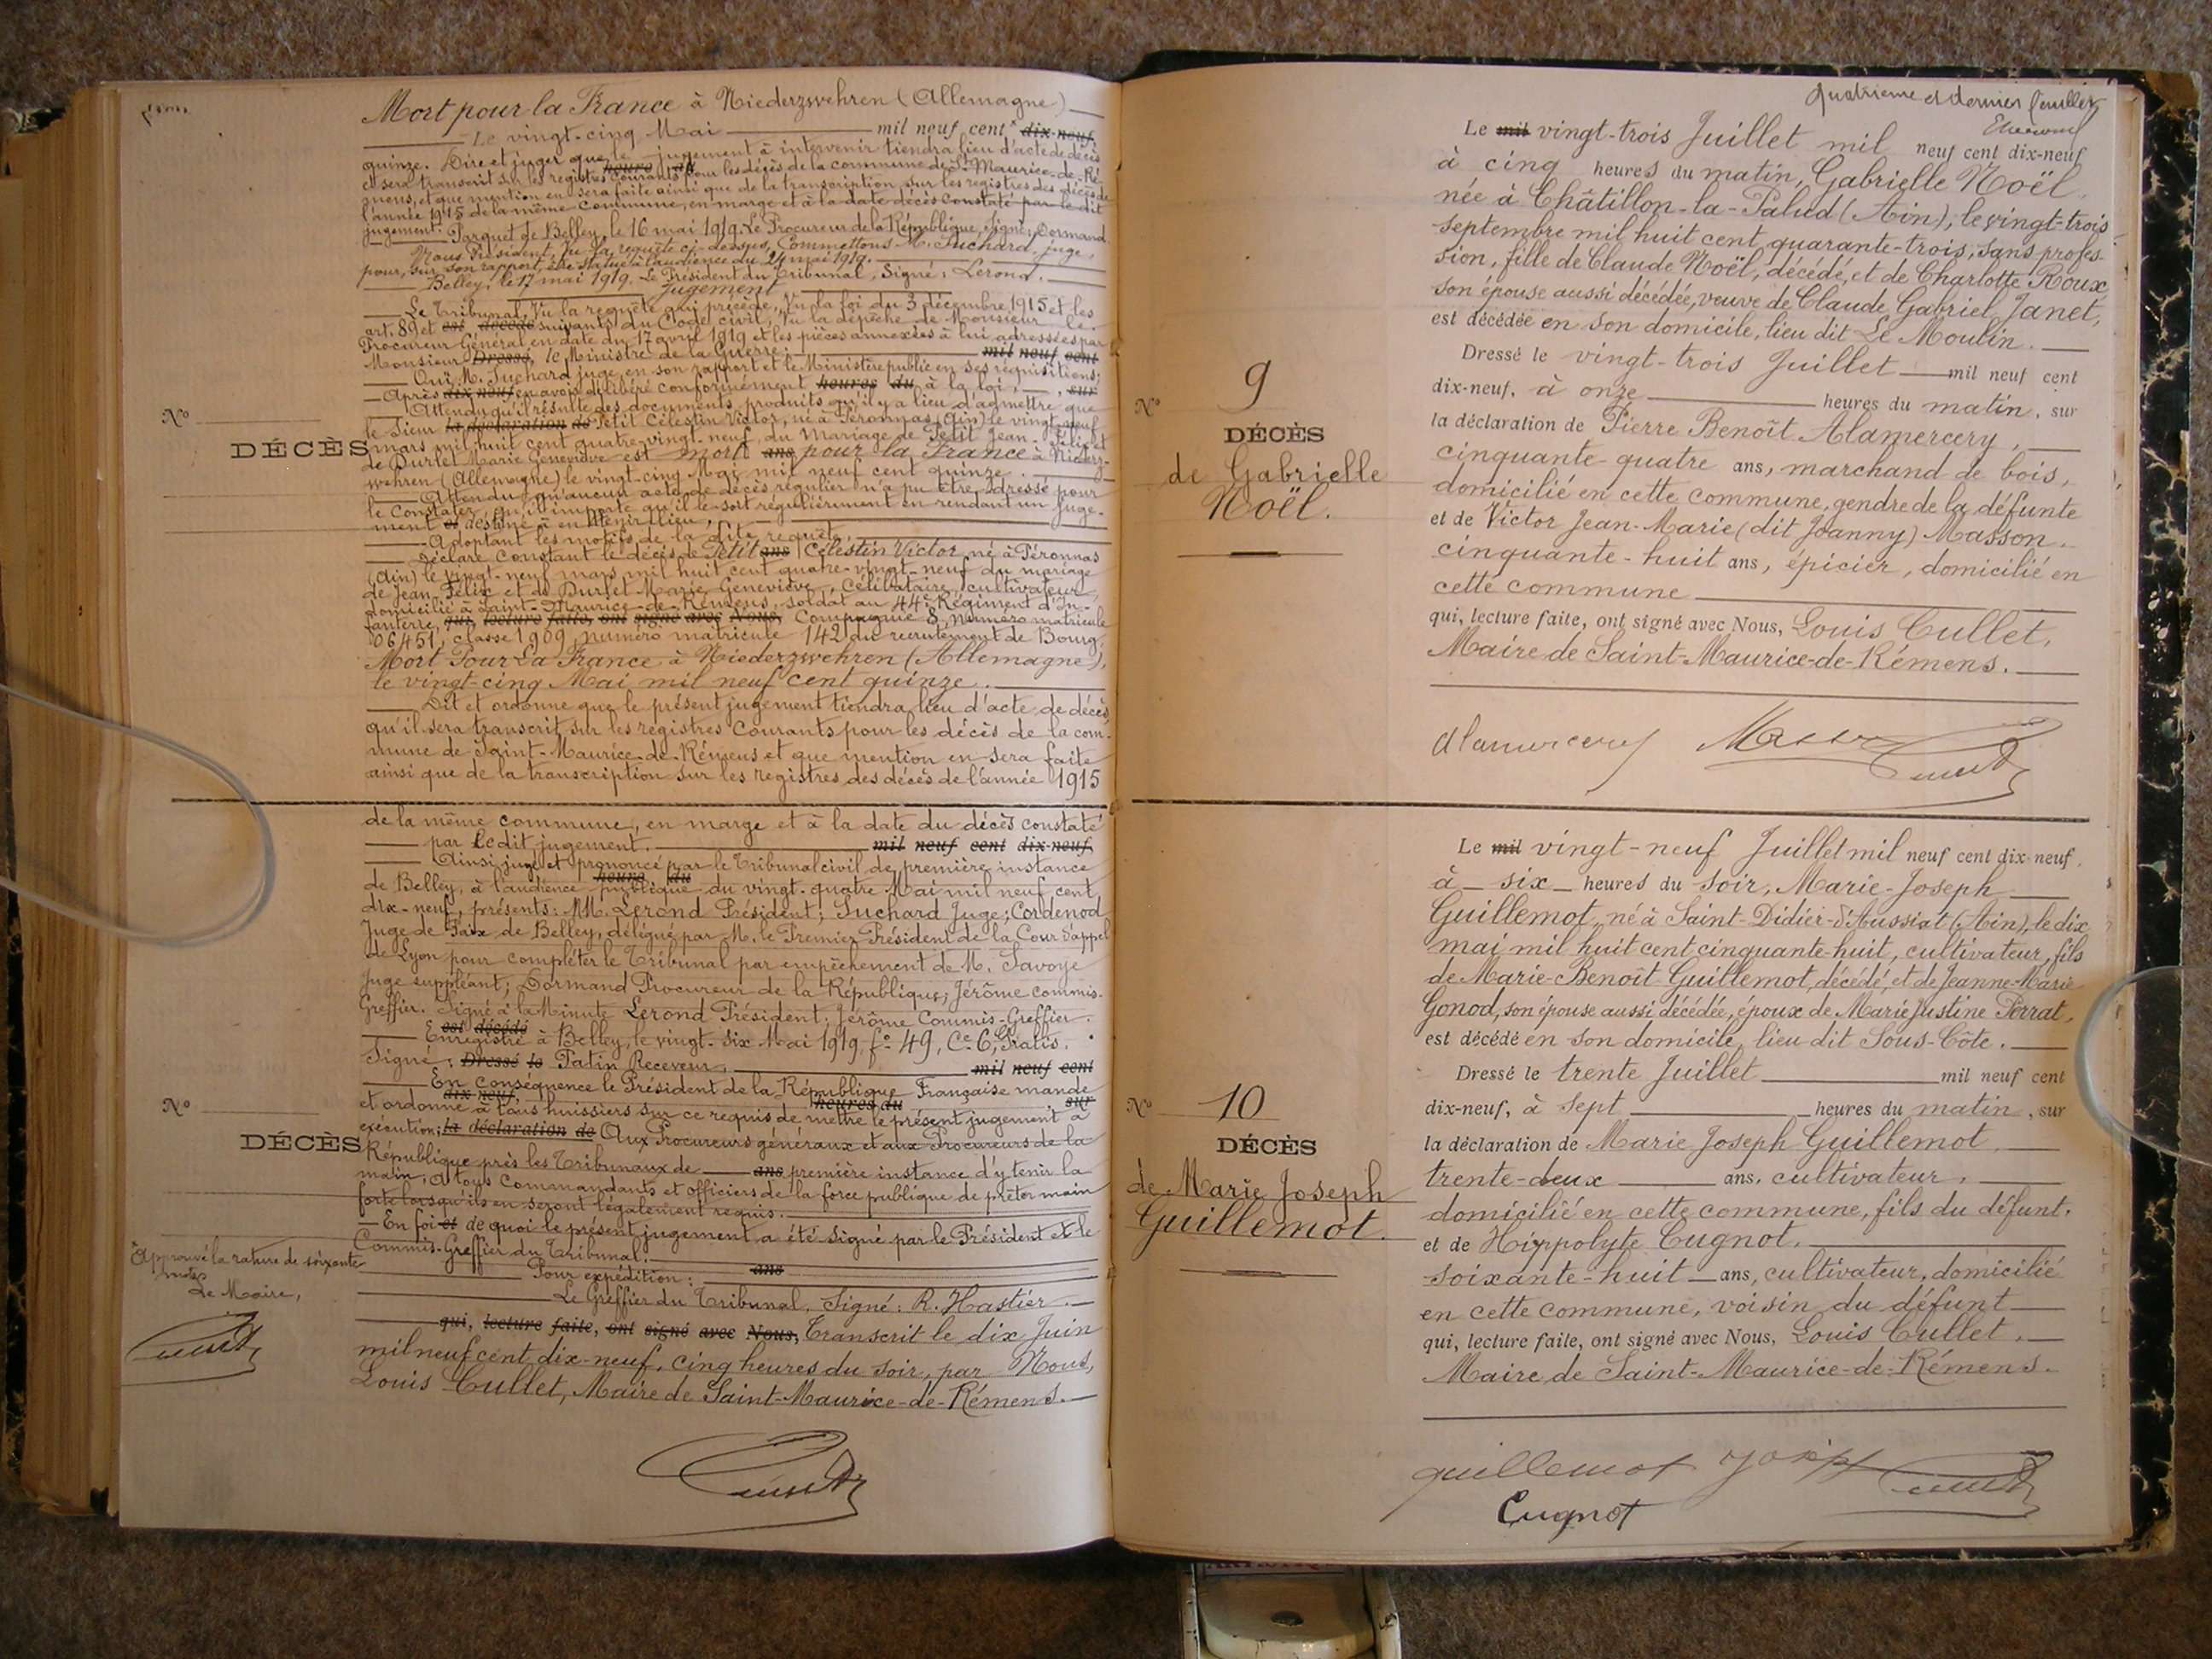 Mort pour la France à Niederzwehren (Allemagne)
Le vingt-cinq Mai mil neuf cent dix-neuf
quinze. Dire et juger que le jugement à intervenir tiendra lieu d'acte de décès
et sera transcrit sur les registres courants pour les décès de la commune de St Maurice-de-Ré-
mens, et que mention en sera faite ainsi que de la transcription sur les registres des décès de
l'année 1915 de la même commune, en marge et à la date décès constaté par le dit
jugement. Parquet de Belley, le 16 mai 1919. Le Procureur de la République, Signé: Dormand.
Nous Président, Vu la requête ci-dessus, Commettons M. Suchard, juge,
pour, sur son rapport, être statué à l'audience du 24 mai 1919.
Belley, le 17 mai 1919. Le Président du Tribunal, Signé: Lerond.
Jugement
Le Tribunal, Vu la requête qui précède, Vu la loi du 3 décembre 1915 et les
art. 89 et est décédé suivants du Code civil, Vu la dépêche de Monsieur le
Procureur Général en date du 17 avril 1919 et les pièces annexées à lui adressées par
Monsieur Dressé, le Ministre de la Guerre: mil neuf cent
Ouï M. Suchard juge, en son rapport et le Ministère public en ses réquisitions;
Après dix-neuf en avoir délibéré conformément heures du à la loi, sur
Attendu qu'il résulte des documents produits qu'il y a lieu d'admettre que
le Sieur la déclaration de Petit Célestin Victor, né à Péronnas (Ain) le vingt-neuf
mars mil huit cent quatre-vingt-neuf, du Mariage de Petit Jean-Félix et
de Burlet Marie Geneviève est mort ans pour la France à Nieder-
wehren (Allemagne) le vingt-cinq Mai mil neuf cent quinze.
Attendu qu'aucun acte de décès régulier n'a pu être dressé pour
le constater, qu'il importe qu'il le soit régulièrement en rendant un juge-
ment et destiné à en tenir lieu,
Adoptant les motifs de la dite requête,
Déclare constant le décès de Petit ans Célestin Victor né à Péronnas
(Ain) le vingt-neuf mars mil huit cent quatre-vingt-neuf du mariage
de Jean Félix et de Burlet Marie Geneviève, Célibataire, cultivateur,
domicilié à Saint-Maurice-de-Rémens, soldat au 44e Régiment d'In-
fanterie, qui, lecture faite, ont signé avec Nous, Compagnie 8, numéro matricule
06451, classe 1909, numéro matricule 142 du recrutement de Bourg,
Mort Pour La France à Niederzwehren (Allemagne),
le vingt-cinq Mai mil neuf cent quinze.
Dit et ordonne que le présent jugement tiendra lieu d'acte de décès,
qu'il sera transcrit sur les registres Courants pour les décès de la com-
mune de Saint-Maurice-de-Rémens et que mention en sera faite
ainsi que de la transcription sur les registres des décès de l'année 1915
No
DÉCÈS
de la même commune, en marge et à la date du décès constaté
par le dit jugement. mil neuf cent dix-neuf,
Ainsi jugé et prononcé par le Tribunal civil de première instance
heure du
de Belley, à l'audience publique du vingt-quatre Mai mil neuf cent
dix-neuf, présents: MM. Lerond Président; Suchard Juge; Cordenod
Juge de Paix de Belley, délégué par M. le Premier Président de la Cour d'appel
de Lyon pour compléter le Tribunal par empêchement de M. Savoye
Juge suppléant; Dormand Procureur de la République; Jérôme Commis-
Greffier. Signé à la Minute Lerond Président; Jérôme Commis-Greffier.
est décédé
Enregistré à Belley, le vingt-six Mai 1919, fo 49, Ce 6, Gratis.
Signé: Dressé le Patin Receveur. mil neuf cent
En conséquence le Président de la République Française mande
dix-neuf, heures du sur
et ordonne à tous huissiers sur ce requis de mettre le présent jugement à
exécution; la déclaration de Aux Procureurs généraux et aux Procureurs de la
République près les Tribunaux de ans première instance d'y tenir la
main; à tous Commandants et officiers de la force publique de prêter main
forte lorsqu'ils en seront légalement requis.
En foi et de quoi le présent jugement a été signé par le Président et le
Commis-Greffier du Tribunal.
Pour expédition: ans
Le Greffier du Tribunal, Signé: R. Hastier.
qui, lecture faite, ont signé avec Nous, Transcrit le dix Juin
mil neuf cent dix-neuf, cinq heures du soir, par Nous,
Louis Cullet, Maire de Saint-Maurice-de-Rémens.
No
DÉCÈS
Approuvé la rature de soixante
mots
Le Maire,
Cullet
Cullet
Quatrième et dernier feuillet
No 9
DÉCÈS
de Gabrielle
Noël.
Le mil vingt-trois Juillet mil neuf cent dix-neuf
à cinq heures du matin, Gabrielle Noël,
née à Châtillon-la-Palud (Ain), le vingt-trois
septembre mil huit cent quarante-trois, sans profes-
sion, fille de Claude Noël, décédé, et de Charlotte Roux,
son épouse aussi décédée, veuve de Claude Gabriel Janet,
est décédée en son domicile, lieu dit Le Moulin.
Dressé le vingt-trois Juillet mil neuf cent
dix-neuf, à onze heures du matin, sur
la déclaration de Pierre Benoît Alamercery,
cinquante-quatre ans, marchand de bois,
domicilié en cette commune, gendre de la défunte
et de Victor Jean-Marie (dit Joanny) Masson.
cinquante-huit ans, épicier, domicilié en
cette commune
qui, lecture faite, ont signé avec Nous, Louis Cullet,
Maire de Saint-Maurice-de-Rémens.
Alamercery Masson
Cullet
No 10
DÉCÈS
de Marie Joseph
Guillemot.
Le mil vingt-neuf Juillet mil neuf cent dix-neuf,
à six heures du soir, Marie-Joseph
Guillemot, né à Saint-Didier-d'Aussiat (Ain), le dix
mai mil huit cent cinquante-huit, cultivateur, fils
de Marie-Benoît Guillemot, décédé, et de Jeanne-Marie
Gonod, son épouse aussi décédée, époux de Marie Justine Perrat,
est décédé en son domicile, lieu dit Sous-Côte.
Dressé le trente Juillet mil neuf cent
dix-neuf, à sept heures du matin, sur
la déclaration de Marie Joseph Guillemot,
trente-deux ans, cultivateur,
domicilié en cette commune, fils du défunt,
et de Hippolyte Cugnot,
soixante-huit ans, cultivateur, domicilié
en cette commune, voisin du défunt
qui, lecture faite, ont signé avec Nous, Louis Cullet,
Maire de Saint-Maurice-de-Rémens.
guillemot Joseph Cullet
Cugnot